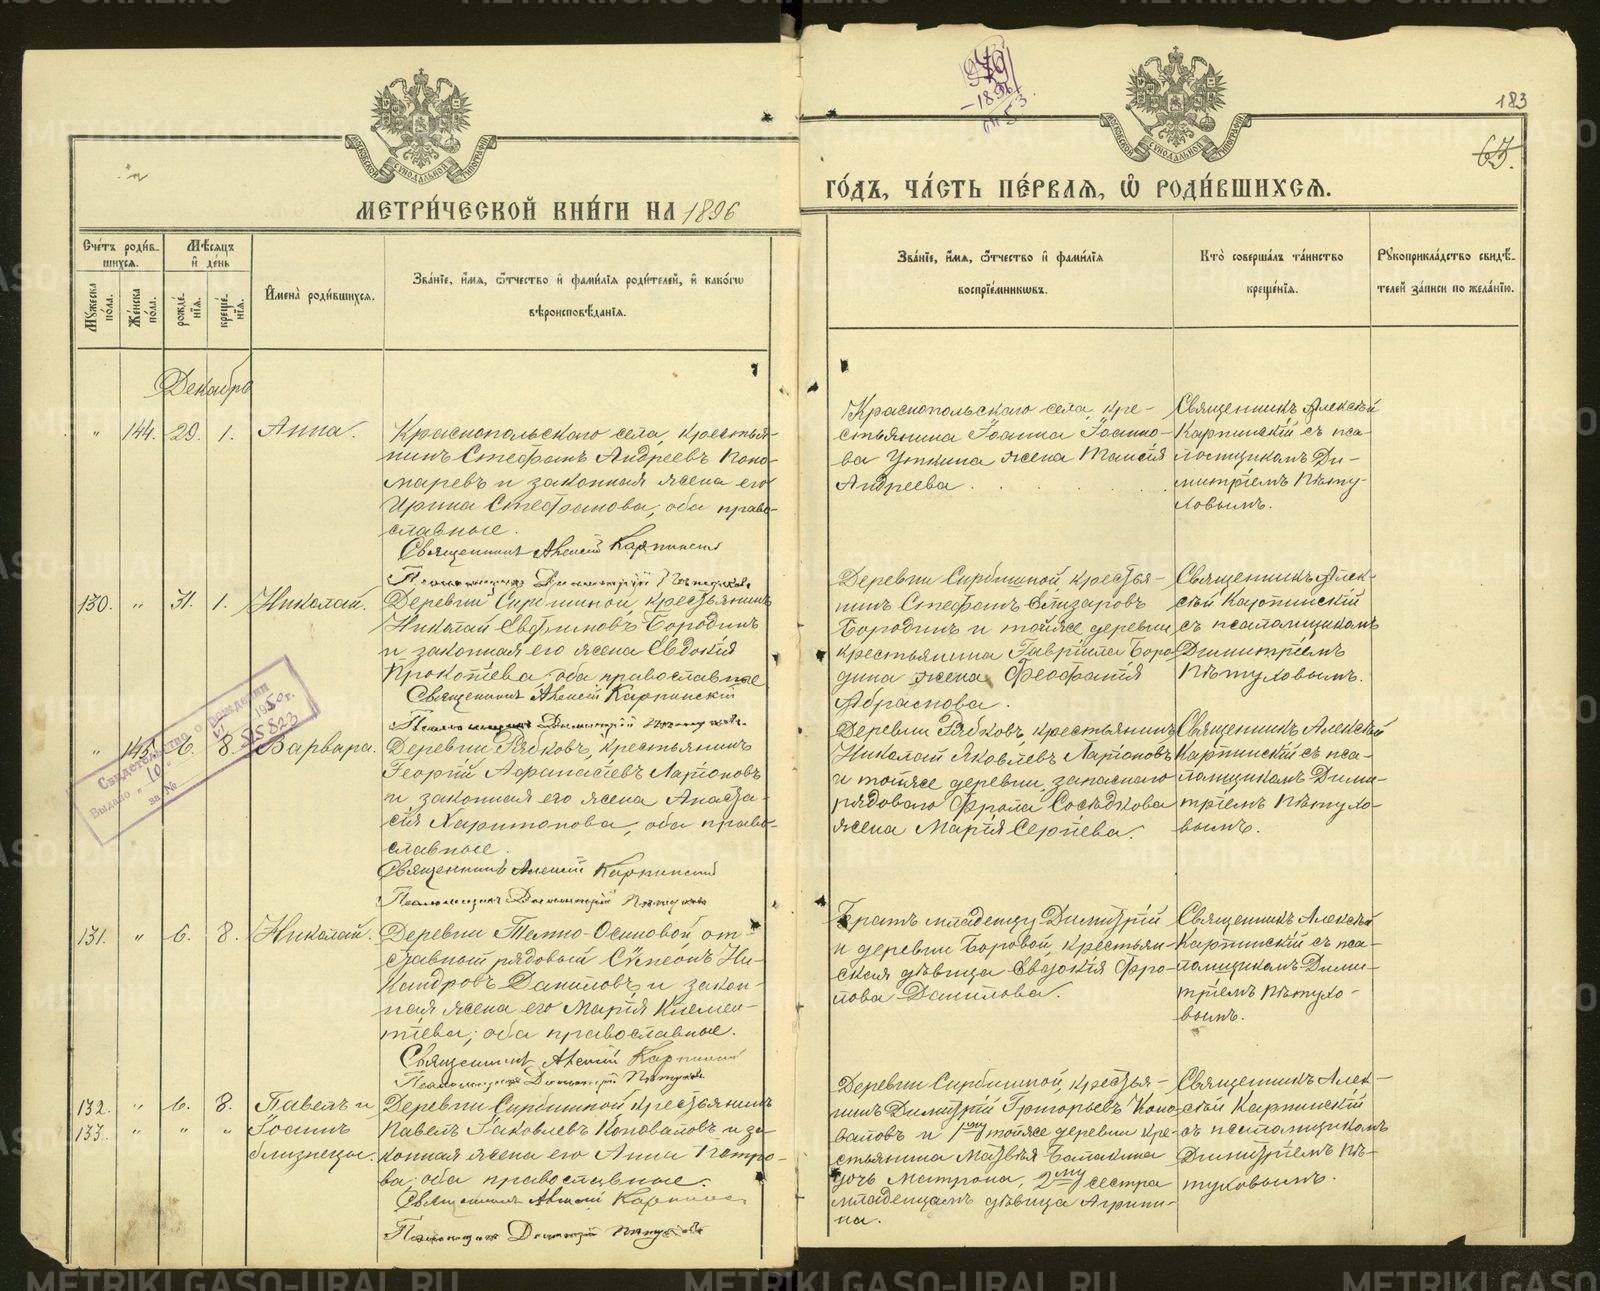 183
65.
МЕТРИ́ЧЕСКОЙ КНИ́ГИ НА 1896
ГО́ДЪ, ЧА́СТЬ ПЕ́РВАЯ, Ѽ РОДИ́ВШИХСЯ.
Сче́тъ роди́в-
шихся.
Мѣсяцъ
и де́нь
Мꙋжеска по́ла.
Же́нска по́ла.
рожде́нїѧ.
креще́нїѧ.
Имена̀ роди́вшихся.
Зва́нїе, и́мѧ, ѻ҆́тчество и фами́лїѧ роди́телей, и како́гѡ
вѣроисповѣ́данїѧ.
Зва́нїе, и́мѧ, ѻ҆́тчество и фами́лїѧ
воспрїе́мникѡвъ.
Кто̀ соверша́лъ та́инство
креще́нїѧ.
Рꙋкоприкла́дство свидѣ́-
телей за́писи по жела́нїю.
Декабрь
" 144. 29. 1. Анна.
Краснопольскаго села, крестья-
нинъ Стефанъ Андреевъ Поно-
маревъ и законная жена его
Ирина Стефанова, оба право-
славные.
Священникъ Алексій Карпинскій
Псаломщикъ Димитрій Пѣтуховъ
Краснопольскаго села, кре-
стьянина Іоанна Іоанно-
ва Упкина жена Таисія
Андреева.
Священникъ Алексѣй
Карпинскій съ пса-
ломщикомъ Ди-
митріемъ Пѣту-
ховымъ.
130. " 31. 1. Николай.
Деревни Сирбишной, крестьянинъ
Николай Евфимовъ Бородинъ
и законная его жена Евдокія
Прокопіева, оба православные
Священникъ Алексій Карпинскій
Псаломщикъ Димитрій Пѣтуховъ
Деревни Сирбишной, крестья-
нинъ Стефанъ Елизаровъ
Бородинъ и тойже деревни
крестьянина Гавріила Боро-
дина жена Феофанія
Абрамова.
Священникъ Алек-
сѣй Карпинскій
съ псаломщикомъ
Димитріемъ
Пѣтуховымъ.
" 145. 6. 8. Варвара.
Деревни Рябковъ, крестьянинъ
Георгій Афанасіевъ Ларіоновъ
и законная его жена Анаста-
сія Харитонова, оба право-
славные.
Священникъ Алексій Карпинскій
Псаломщикъ Димитрій Пѣтуховъ
Деревни Рябковъ, крестьянинъ
Николай Яковлевъ Ларіоновъ
и тойже деревни, запаснаго
рядоваго Фрола Сосѣдкова
жена Марія Сергіева.
Священникъ Алексѣй
Карпинскій съ пса-
ломщикомъ Дими-
тріемъ Пѣтухо-
вымъ.
Свидетельство о рождении
Выдано „10" VI 1950 г.
за №
131. " 6. 8. Николай.
Деревни Темно-Осиновой, от-
ставной рядовой Сѵмеонъ Ни-
кандровъ Даниловъ и закон-
ная жена его Марія Климен-
тіева, оба православные.
Священникъ Алексій Карпинскій
Псаломщикъ Димитрій Пѣтуховъ
Братъ младенцу Димитрій
и деревни Боровой, крестьян-
ская дѣвица Евдокія Фро-
лова Данилова.
Священникъ Алексѣй
Карпинскій съ пса-
ломщикомъ Дими-
тріемъ Пѣтухо-
вымъ.
132. " 6. 8. Павелъ и
133. " " " Іоаннъ
близнецы.
Деревни Сирбишной, крестьянинъ
Павелъ Іаковлевъ Коноваловъ и за-
конная жена его Анна Петро-
ва, оба православные.
Священникъ Алексій Карпинскій
Псаломщикъ Димитрій Пѣтуховъ
Деревни Сирбишной, крестья-
нинъ Димитрій Григорьевъ Коно-
валовъ и 1му тойже деревни кре-
стьянина Матвѣя Балакина
дочь Матрона, 2му сестра
младенцамъ дѣвица Агрипи-
на.
Священникъ Алек-
сѣй Карпинскій
съ псаломщикомъ
Димитріемъ Пѣ-
туховымъ.
METRIKI.GASO-URAL.RU